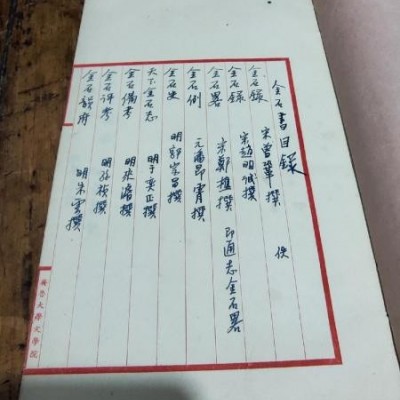 金石書目錄
金石錄 宋曾鞏撰 佚
金石錄 宋趙明誠撰
金石畧 宋鄭樵撰 即通志金石畧
金石例 元潘昂霄撰
金石史 明郭宗昌撰
天下金石志 明于奕正撰
金石備考 明來濬撰
金石評考 明孫楨撰
金石韻府 明朱雲撰
齊魯大學文學院